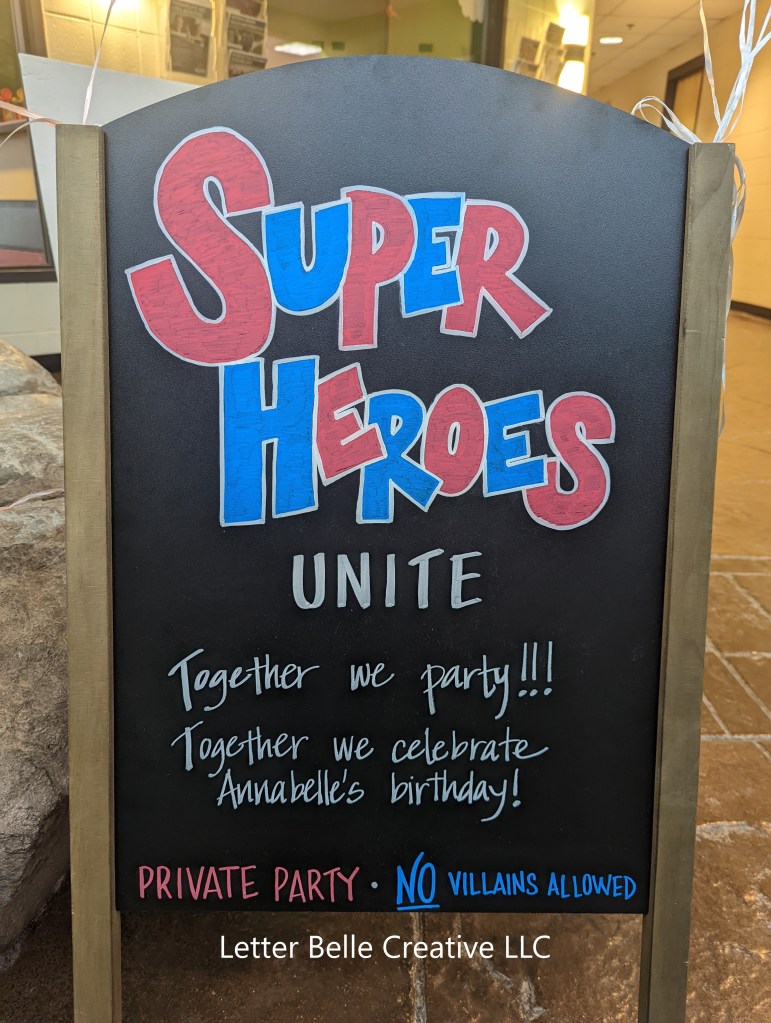 SUPER
HEROES
UNITE
Together we party!!!
Together we celebrate
Annabelle's birthday!
PRIVATE PARTY · NO VILLAINS ALLOWED
Letter Belle Creative LLC